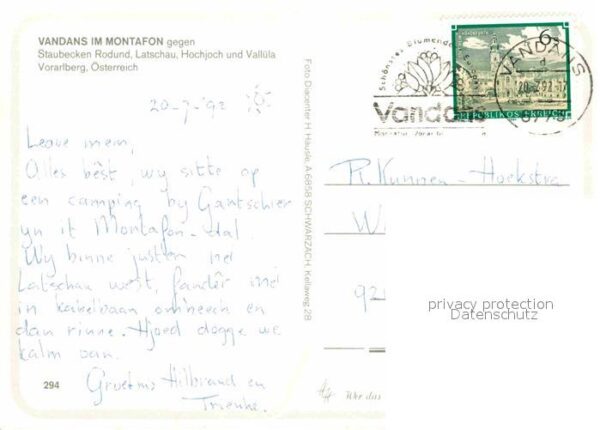 VANDANS IM MONTAFON gegen
Staubecken Rodund, Latschau, Hochjoch und Vallüla
Vorarlberg, Österreich
20-7-'92
Leave mem,
Alles bêst, wy sitte op
een camping by Gantschier
yn it Montafon-dal.
Wy binne juster nei
Latschau west, fandêr mei
in kabelbaan omheech en
dan rinne. Hjoed dogge we
kalm oan.
Groetnis Hilbrand en
Trienke.
294
Foto Diacenter H. Hausle, A 6858 SCHWARZACH, Kellaweg 28
Schönstes Blumendorf
Vandans
Montafon
VANDANS
20.-7.92
6773
6
REPUBLIK ÖSTERREICH
R. Kunnen-Hoekstra
W
92
privacy protection
Datenschutz
Wer das